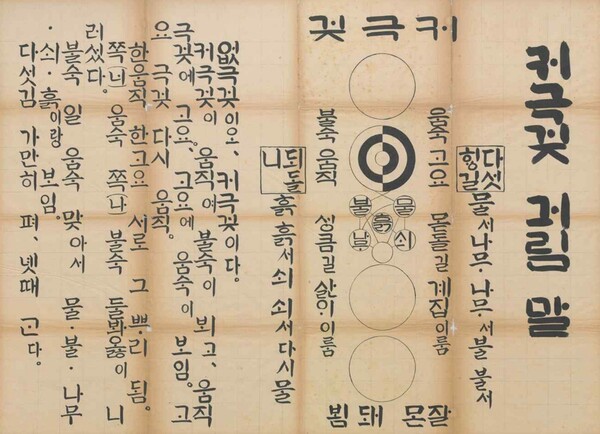 커극긏 그림 말
다섯힝길 물서나무·나무·서불 불서
움숙 고요 몬돌길 계집이룸
커극긏
물 불
흙
쇠
불숙 움직 싱큼길 산이이룸
잘몬 돼 뵘
되돌니 흙 흙서쇠 쇠서다시물
없극긏이오、커극긏이다。
커극긏이 움직여불숙이 뵈고、움직
극긏에 고요。고요에 움숙이 보임。고
요 극긏 다시 움직。
한움직 한고요 서로 그 뿌리 됨。
움숙 쪽(나) 불숙 둘봐옳이 니
러섰다。
불숙 일 움숙 맞아서 물·불·나무
·쇠·흙이랑 보임。
다섯김 가만히 펴、넷때 간다。